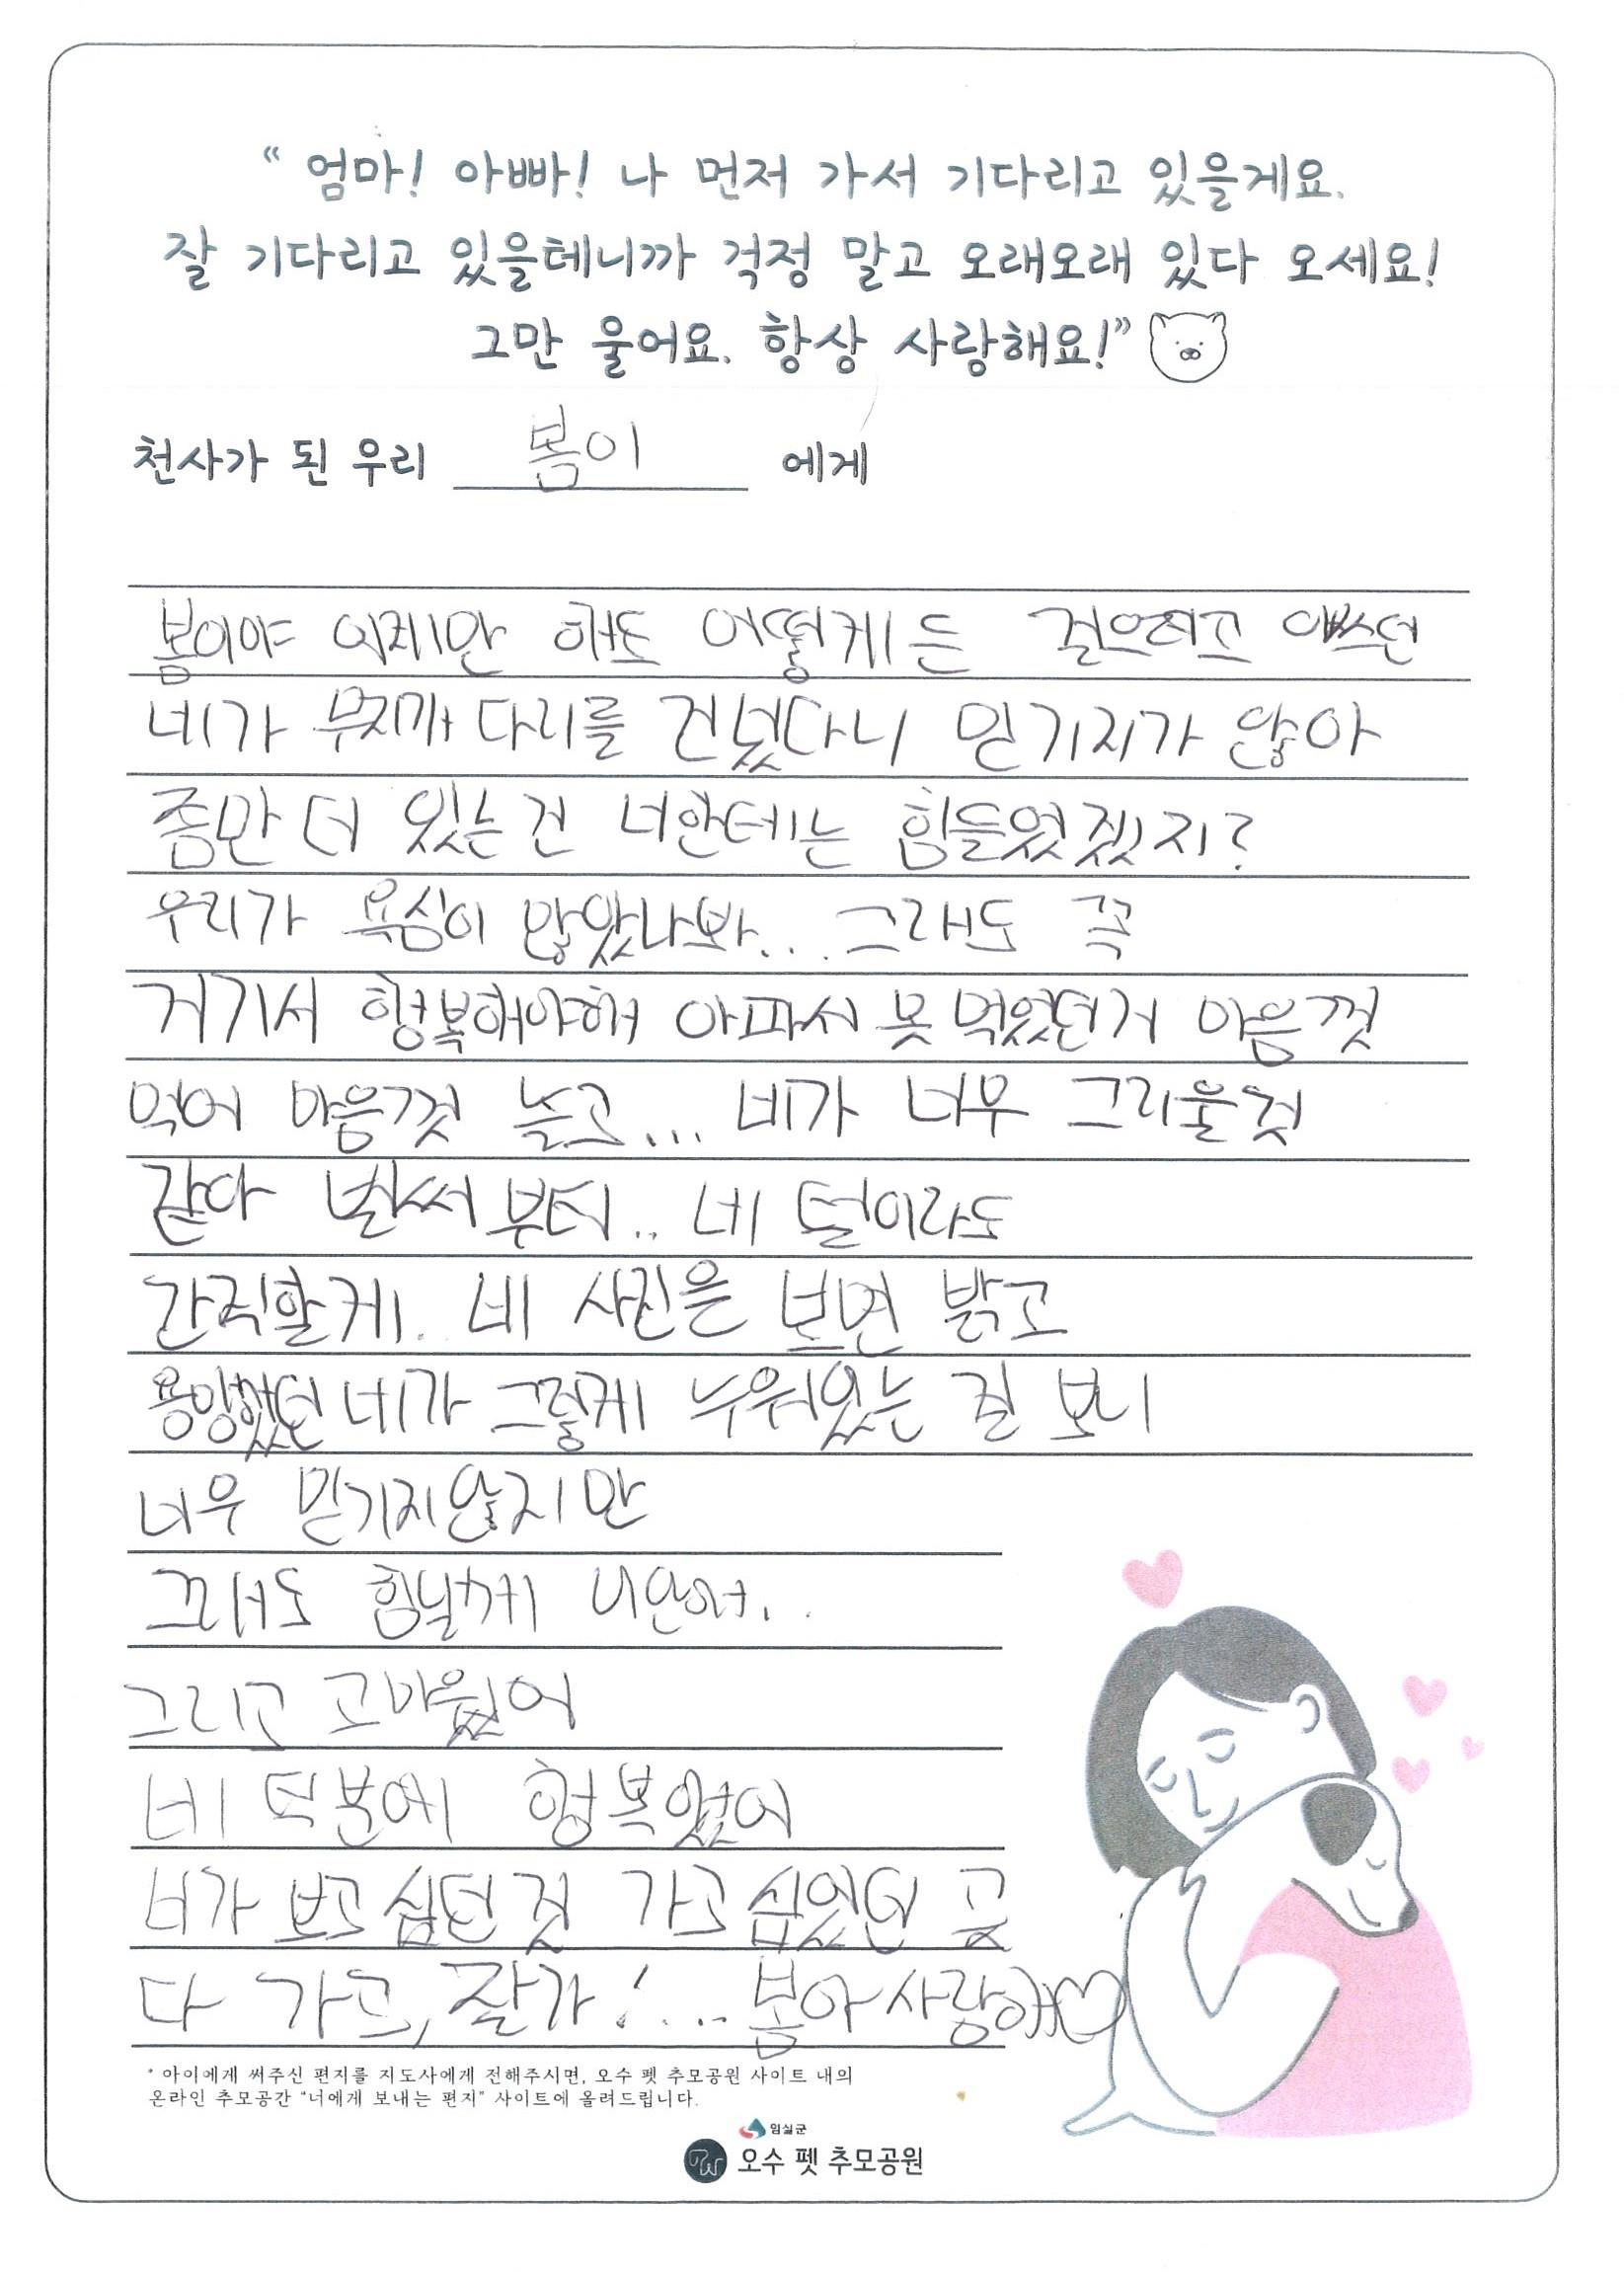 “ 엄마! 아빠! 나 먼저 가서 기다리고 있을게요.
잘 기다리고 있을테니까 걱정 말고 오래오래 있다 오세요!
그만 울어요. 항상 사랑해요!”
천사가 된 우리 봄이 에게
봄이야 어제만 해도 어떻게든 걸으려고 애쓰던
네가 무지개 다리를 건넜다니 믿기지가 않아
좀만 더 있는건 너한테는 힘들었겠지?
우리가 욕심이 많았나봐... 그래도 꼭
거기서 행복해야해 아파서 못 먹었던거 마음껏
먹어 마음껏 놀고... 네가 너무 그리울것
같아 벌써부터.. 네 털이라도
간직할게. 네 사진은 보면 밝고
용맹했던 네가 그렇게 누워있는 걸 보니
너무 믿기지않지만
그래도 힘낼께 미안해..
그리고 고마웠어
네 덕분에 행복했어
네가 보고 싶던 것 가고 싶었던 곳
다 가고, 잘가!... 봄아 사랑해♡
* 아이에게 써주신 편지를 지도사에게 전해주시면, 오수 펫 추모공원 사이트 내의
온라인 추모공간 “너에게 보내는 편지” 사이트에 올려드립니다.
임실군
오수 펫 추모공원